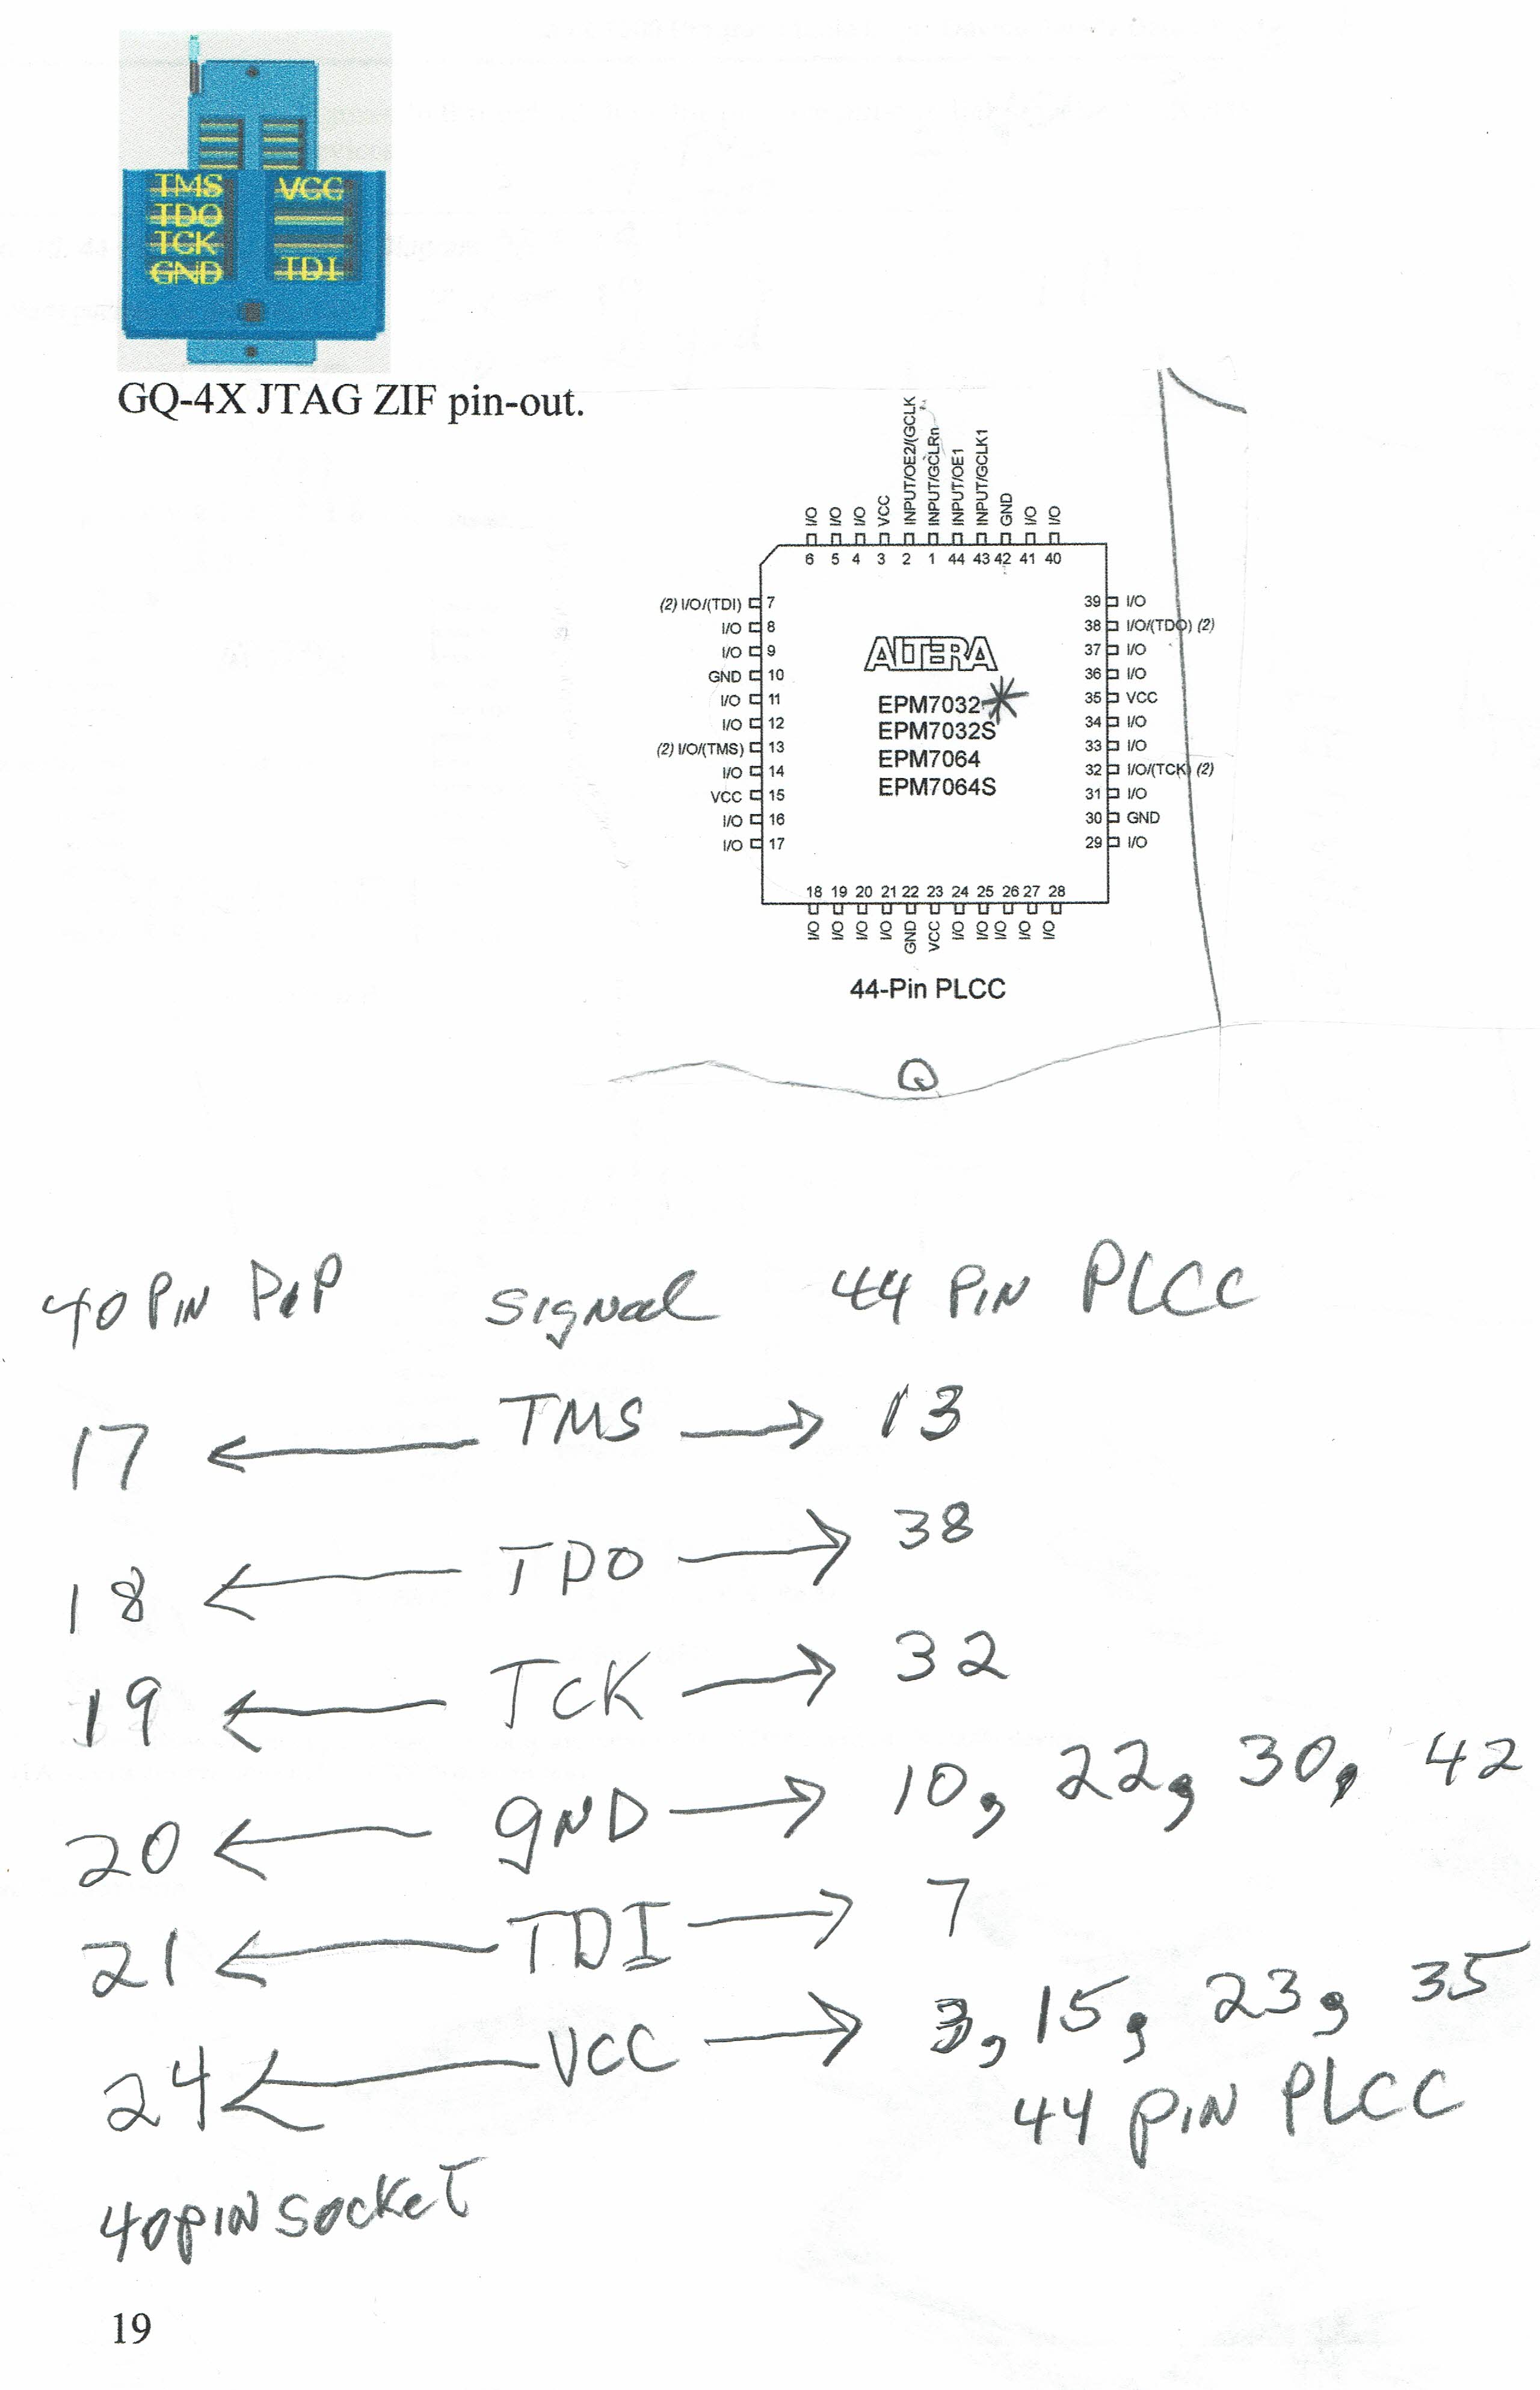 TMS VCC
TDO
TCK
GND TDI
GQ-4X JTAG ZIF pin-out.
I/O I/O I/O VCC INPUT/OE2/(GCLK INPUT/GCLRn INPUT/OE1 INPUT/GCLK1 GND I/O I/O
6 5 4 3 2 1 44 43 42 41 40
(2) I/O/(TDI) 7 39 I/O
I/O 8 38 I/O/(TDO) (2)
I/O 9 37 I/O
GND 10 36 I/O
I/O 11 35 VCC
I/O 12 34 I/O
(2) I/O/(TMS) 13 33 I/O
I/O 14 32 I/O/(TCK) (2)
VCC 15 31 I/O
I/O 16 30 GND
I/O 17 29 I/O
ALTERA
EPM7032*
EPM7032S
EPM7064
EPM7064S
18 19 20 21 22 23 24 25 26 27 28
I/O I/O I/O I/O GND VCC I/O I/O I/O I/O I/O
44-Pin PLCC
40 PIN DIP Signal 44 PIN PLCC
17 ← TMS → 13
18 ← TDO → 38
19 ← TCK → 32
20 ← gND → 10, 22, 30, 42
21 ← TDI → 7
24 ← VCC → 3, 15, 23, 35
44 PIN PLCC
40 PIN SOCKET
19